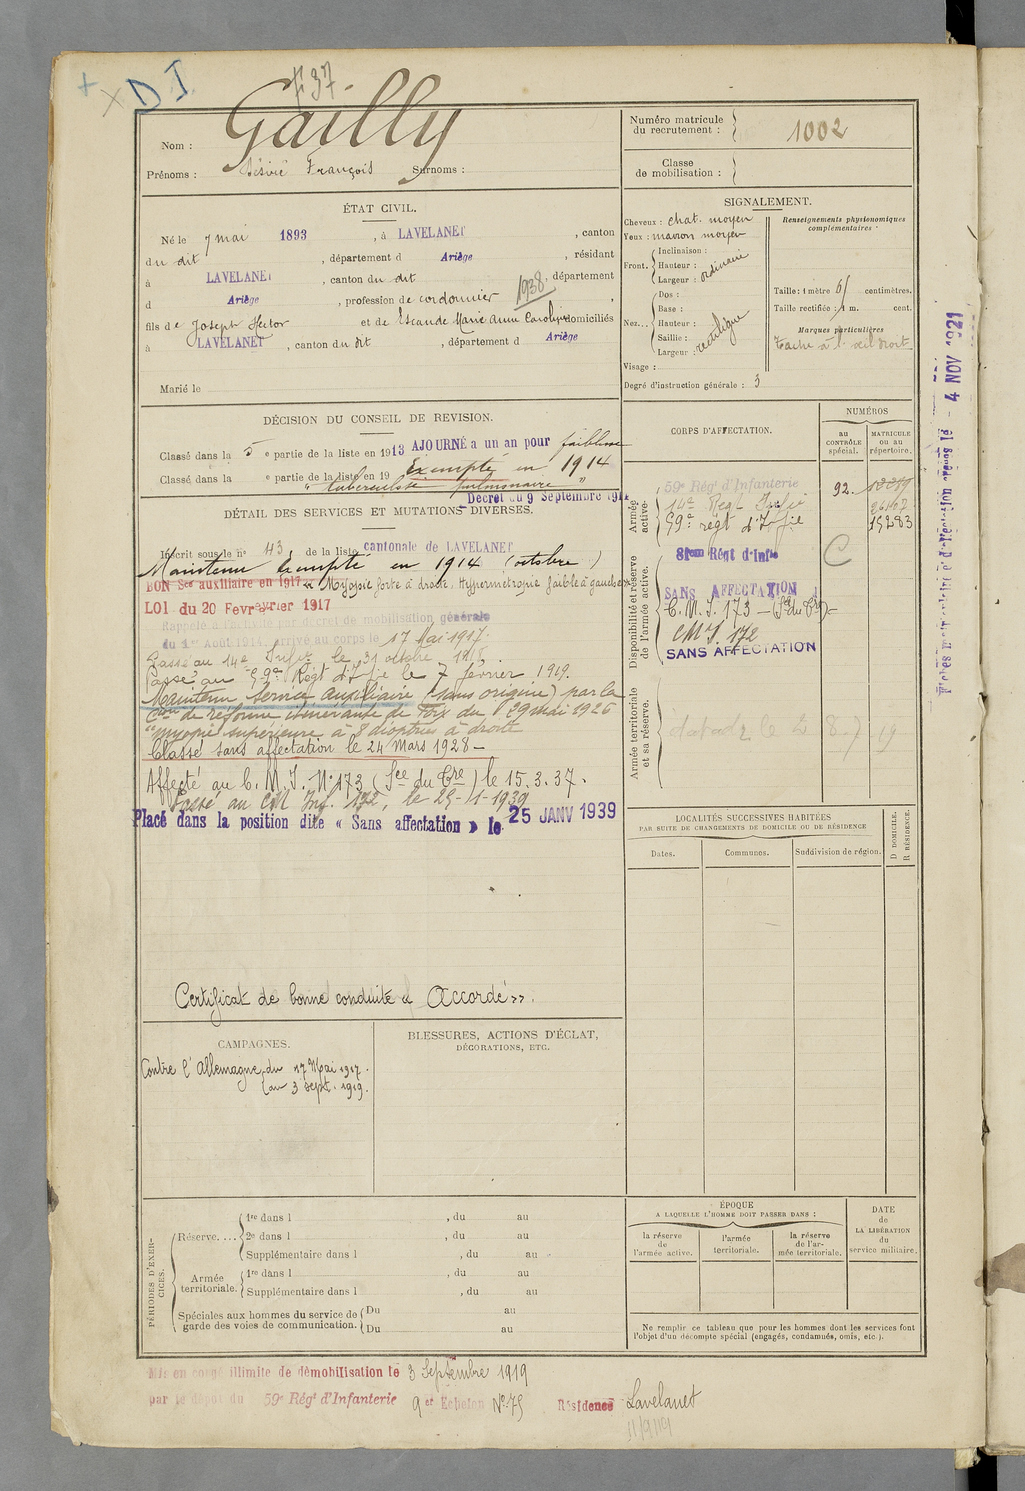 + x D I.
F 37-
Nom : Gailly
Prénoms : Désiré François Surnoms :
Numéro matricule du recrutement : 1002
Classe de mobilisation :
ÉTAT CIVIL.
Né le 7 mai 1893, à LAVELANET, canton
du dit, département d Ariège, résidant
à LAVELANET, canton du dit 1938. département
d Ariège, profession de cordonnier,
fils de Joseph Hector et de Escande Marie Anne Caroline domiciliés
à LAVELANET, canton du dit, département d Ariège
Marié le
SIGNALEMENT.
Cheveux : chat. moyen
Yeux : marron moyen
Front. Inclinaison :
Hauteur : ordinaire
Largeur :
Nez... Dos :
Base :
Hauteur : rectiligne
Saillie :
Largeur :
Visage :
Degré d'instruction générale : 3
Renseignements physionomiques complémentaires :
Taille : 1 mètre 61 centimètres.
Taille rectifiée : 1 m. cent.
Marques particulières
Tache à l'œil droit
DÉCISION DU CONSEIL DE REVISION.
Classé dans la 5 e partie de la liste en 1913 AJOURNÉ a un an pour faiblesse
Classé dans la e partie de la liste en 19 Exempté en 1914
"tuberculose pulmonaire"
Décret du 9 Septembre 1914
DÉTAIL DES SERVICES ET MUTATIONS DIVERSES.
Inscrit sous le n° 43 de la liste cantonale de LAVELANET
Maintenu Exempté en 1914 (octobre)
BON Sce auxiliaire en 1917 « Myopie forte à droite. Hypermétropie faible à gauche »
LOI du 20 Fevrier 1917
Rappelé à l'activité par décret de mobilisation générale
du 1er Août 1914, arrivé au corps le 17 Mai 1917.
Passé au 14e Infie le 31 octobre 1918.
Passé au 59e Régt d'Infie le 7 février 1919.
Maintenu Service Auxiliaire (sans origine) par la
Con de réforme itinérante de Foix du 29 mai 1926
"myopie supérieure à 8 dioptries à droite
Classé sans affectation le 24 Mars 1928 -
Affecté au C. M. I. N° 173 (Sce du Cre) le 15.3.37.
Passé au CM Inf. 172, le 25-1-1939
Placé dans la position dite « Sans affectation » le 25 JANV 1939
Certificat de bonne conduite « Accordé ».
CORPS D'AFFECTATION.
NUMÉROS
AU CONTRÔLE spécial.
MATRICULE ou au répertoire.
Armée active
59e Régt d'Infanterie 92. 13279
14e Régt Infie
59e régt d'Infie 15283
Disponibilité et réserve de l'armée active.
81eme Régt d'Infie C
SANS AFFECTATION
C. M. I. 173 - (Sce du Cre) -
CMI. 172
SANS AFFECTATION
Armée territoriale et sa réserve.
Fiches matricule et d'affection reçues le - 4 NOV 1921
LOCALITÉS SUCCESSIVES HABITÉES
PAR SUITE DE CHANGEMENTS DE DOMICILE OU DE RÉSIDENCE
Dates. Communes. Subdivision de région. D DOMICILE. R RÉSIDENCE.
CAMPAGNES.
Contre l'Allemagne du 17 Mai 1917.
au 3 sept. 1919.
BLESSURES, ACTIONS D'ÉCLAT,
DÉCORATIONS, ETC.
PÉRIODES D'EXERCICES.
Réserve.... 1re dans l , du au
2e dans l , du au
Supplémentaire dans l , du au
Armée territoriale. 1re dans l , du au
Supplémentaire dans l , du au
Spéciales aux hommes du service de garde des voies de communication. Du au
Du au
ÉPOQUE
A LAQUELLE L'HOMME DOIT PASSER DANS :
la réserve de l'armée active. l'armée territoriale. la réserve de l'armée territoriale.
DATE de LA LIBÉRATION du service militaire.
Ne remplir ce tableau que pour les hommes dont les services font
l'objet d'un décompte spécial (engagés, condamnés, omis, etc.).
Mis en congé illimité de démobilisation le 3 Septembre 1919
par le dépôt du 59e Régt d'Infanterie 9e Echelon N° 75 Résidence Lavelanet